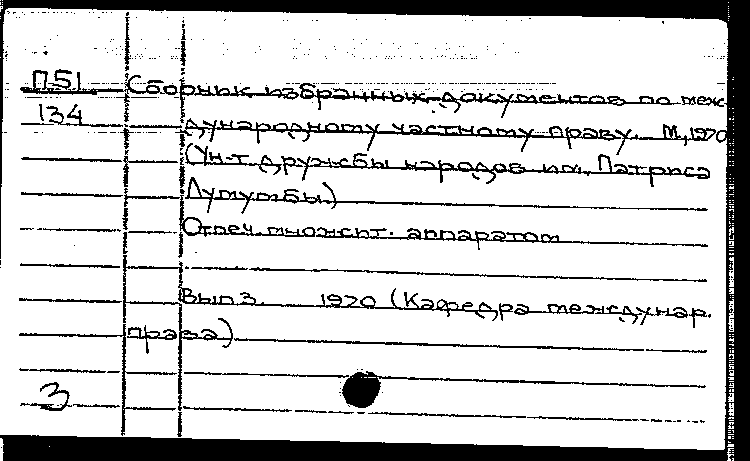 П51 Сборник избранных документов по меж-
134 дународному частному праву. М., 1970
(Ун-т дружбы народов им. Патриса
Лумумбы.)
Отпеч. множит. аппаратом
Вып 3. 1970 (Кафедра междунар.
права)
3